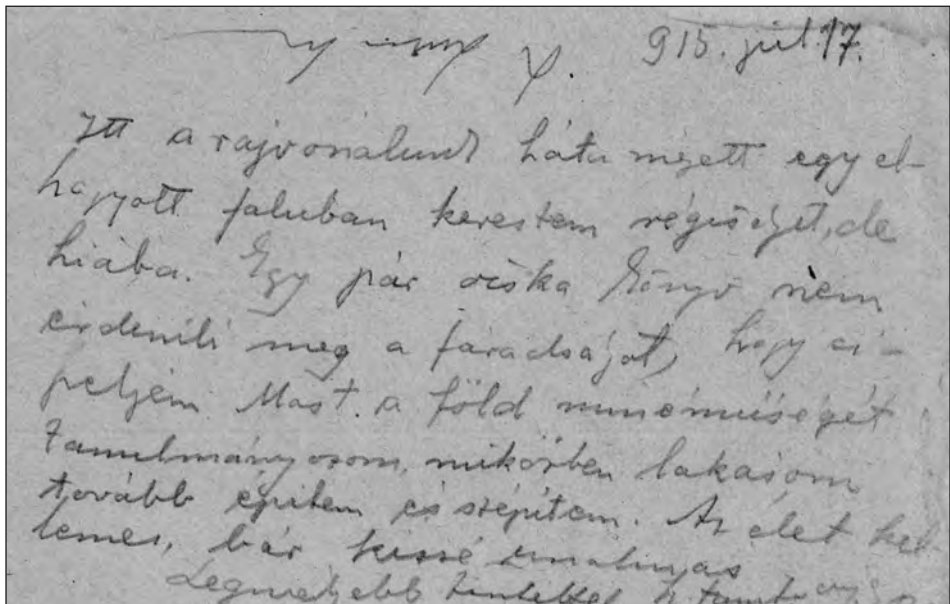 915. júl. 17.
Itt a rajvonalunk háta megett egy el-
hagyott faluban kerestem régiséget, de
hiába. Egy pár ócska könyv nem
érdemli meg a fáradságot, hogy ci-
peljem. Most a föld neműségét
tanulmányozom, miközben lakásom
tovább építem és szépítem. Az élet kel-
lemes, bár kissé unalmas
Legmélyebb tisztelettel